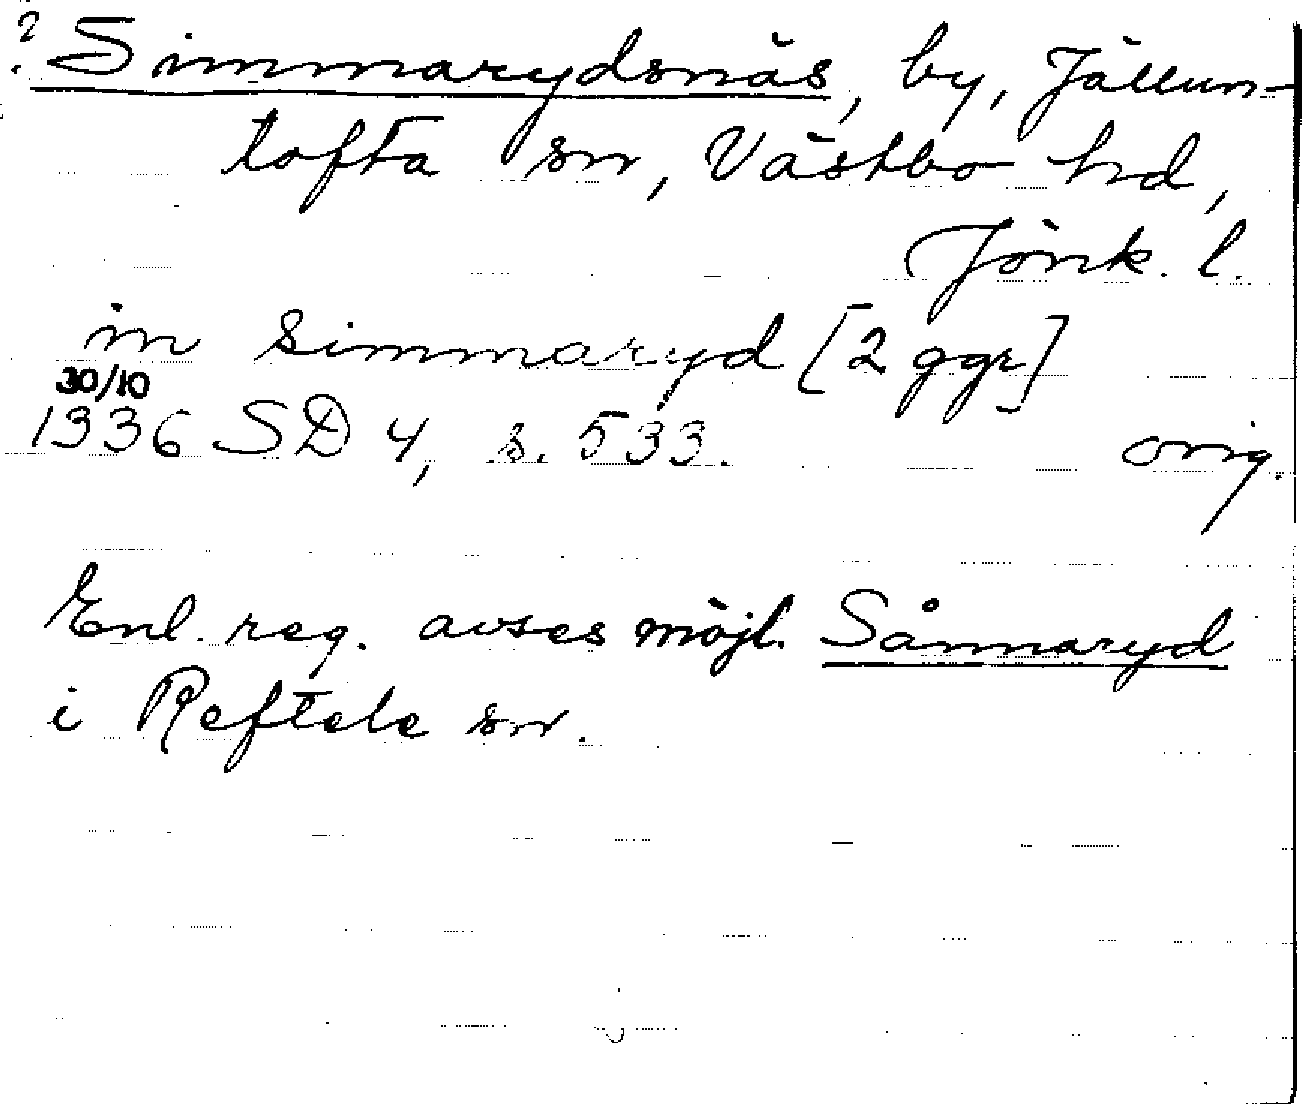 ? Simmarydsnäs, by, Jällun-
tofta sn, Västbo hd,
Jönk. l.
in simmaryd [2 ggr]
30/10
1336 SD 4, s. 533. orig.
Enl. reg. avses möjl. Sånnaryd
i Reftele sn.